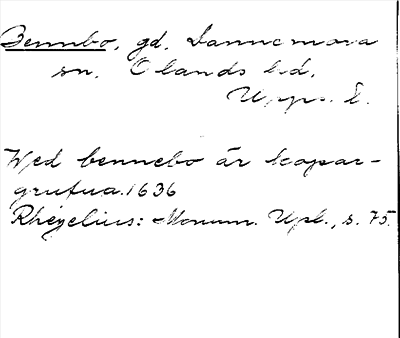 Bennbo, gd. Dannemora
sn. Olands hd.
Upps. l.
Wed bennebo är kopar-
grufua. 1636
Rhezelius: Monum. Upl., s. 75.